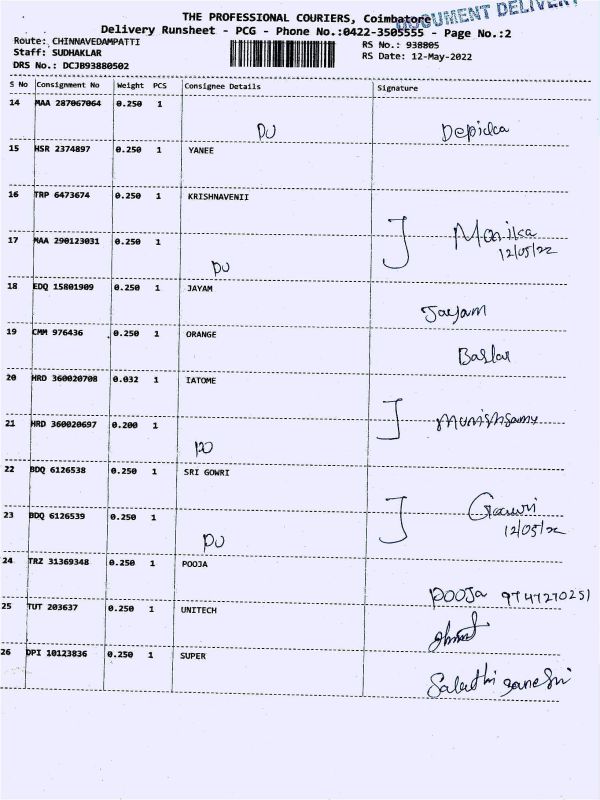 THE PROFESSIONAL COURIERS, Coimbatore
DOCUMENT DELIVERY
Delivery Runsheet - PCG - Phone No.:0422-3505555 - Page No.:2
Route: CHINNAVEDAMPATTI
RS No.: 938805
Staff: SUDHAKLAR
RS Date: 12-May-2022
DRS No.: DCJB93880502
S No Consignment No Weight PCS Consignee Details Signature
14 MAA 287067064 0.250 1
DU Depidea
15 HSR 2374897 0.250 1 YANEE
16 TRP 6473674 0.250 1 KRISHNAVENII
Monika
17 MAA 290123031 0.250 1
12/05/22
DU
18 EDQ 15801909 0.250 1 JAYAM
Jayam
19 CMM 976436 0.250 1 ORANGE
Baslar
20 HRD 360020708 0.032 1 IATOME
21 HRD 360020697 0.200 1
Munishsamy
DO
22 BDQ 6126538 0.250 1 SRI GOWRI
Gowri
23 BDQ 6126539 0.250 1
12/05/22
DU
24 TRZ 31369348 0.250 1 POOJA
POOJA 9747270251
25 TUT 203637 0.250 1 UNITECH
26 DPI 10123836 0.250 1 SUPER